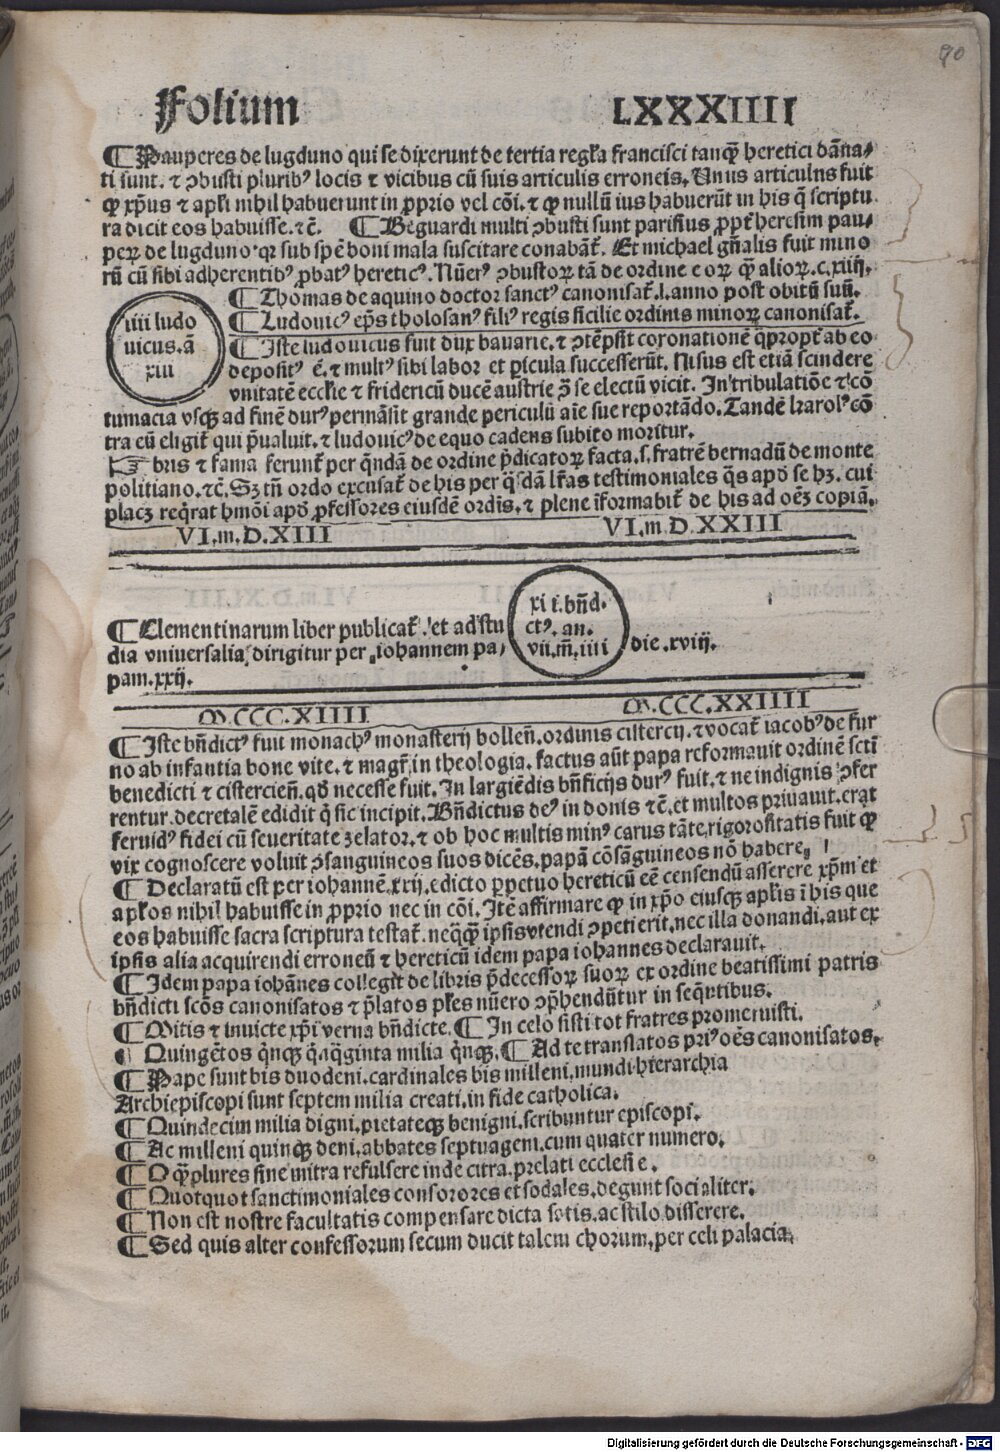 90
Folium LXXXIIII
¶ Pauperes de lugduno qui se dixerunt de tertia regl̃a francisci tanqꝫ heretici dãna-
ti sunt. ⁊ ↄbusti pluribꝰ locis ⁊ vicibus cũ suis articulis erroneis. Unus articulns fuit
ꝙ xp̃us ⁊ apl̃i nihil habuerunt in ꝓprio vel cõi. ⁊ ꝙ nullũ ius habuerũt in his q̃ scriptu
ra dicit eos habuisse. ⁊c̃. ¶ Beguardi multi ↄbusti sunt parisius ꝓpt̃ heresim pau-
peꝝ de lugduno. qꝛ sub sp̃e boni mala suscitare conabãt̃. Et michael gñalis fuit mino
rũ cũ sibi adherentibꝰ ꝓbatꝰ hereticꝰ. Nũerꝰ ↄbustoꝝ tã de ordine eoꝝ qꝫ alioꝝ. c.xiiij.
¶ Thomas de aquino doctor sanctꝰ canonisat̃. l. anno post obitũ suũ.
¶ Ludouicꝰ ep̃s tholosanꝰ filiꝰ regis sicilie ordinis minoꝝ canonisat̃.
iiii ludo
uicus. ã
xiii
¶ Iste ludouicus fuit dux bauarie. ⁊ ↄtẽpsit coronationẽ q̃propt̃ ab eo
depositꝰ ẽ. ⁊ multꝰ sibi labor et ꝑicula successerũt. Nisus est etiã scindere
vnitatẽ eccl̃ie ⁊ fridericũ ducẽ austrie ↄ̃ se electũ vicit. In tribulatiõe ⁊ cõ
tumacia vsqꝫ ad finẽ durꝰ permãsit grande periculũ aĩe sue reportãdo. Tandẽ karolꝰ cõ
tra eũ eligit̃ qui p̃ualuit. ⁊ ludouicꝰ de equo cadens subito moritur.
☞ bris ⁊ fama ferunt̃ per q̃ndã de ordine p̃dicatoꝝ facta. s. fratrẽ bernadũ de monte
politiano. ⁊c̃. Sꝫ tñ ordo excusat̃ de his per q̃sdã lr̃as testimoniales q̃s apđ se hꝫ. cui
placꝫ reqͥrat hmõi apđ ꝓfessores eiusdẽ ordĩs. ⁊ plene ĩformabit̃ de his ad oẽꝫ copiã.
VI.m.D.XIII VI.m.D.XXIII
¶ Clementinarum liber publicat̃. et ad stu
dia vniuersalia dirigitur per iohannem pa-
pam. xxij.
xi i. bñd.
ctꝰ. an.
vii. m̃. iiii
die. xviij.
M.CCC.XIIII M.CCC.XXIIII
¶ Iste bñdictꝰ fuit monachꝰ monasterij bollen̄. ordinis cistercij. ⁊ vocat̃ iacobꝰ de fur
no ab infantia bone vite. ⁊ magr̃ in theologia. factus aũt papa reformauit ordinẽ scti
benedicti ⁊ cistercien̄. qđ necesse fuit. In largiẽdis bñficijs durꝰ fuit. ⁊ ne indignis ↄfer
rentur. decretalẽ edidit q̃ sic incipit. Bñdictus deꝰ in donis ⁊c̃. et multos priuauit. erat
feruidꝰ fidei cũ seueritate zelator. ⁊ ob hoc multis minꝰ carus tãte rigorositatis fuit ꝙ
vix cognoscere voluit ↄsanguineos suos dicẽs. papã cõsãguineos nõ habere.
¶ Declaratũ est per iohannẽ. xxij. edicto ꝑpetuo hereticũ eẽ censendũ asserere xp̃m et
apl̃os nihil habuisse in ꝓprio nec in cõi. Itẽ affirmare ꝙ in xp̃o eiusqꝫ apl̃is ĩ his que
eos habuisse sacra scriptura testat̃. neqq̃ꝫ ipsis vtendi ↄpetierit. nec illa donandi. aut ex
ipsis alia acquirendi erroneũ ⁊ hereticũ idem papa iohannes declarauit.
¶ Idem papa iohãnes collegit de libris p̃decessoꝝ suoꝝ ex ordine beatissimi patris
bñdicti scõs canonisatos ⁊ p̃latos pl̃es nũero ꝯp̃hendũtur in seq̃ntibus.
¶ Mitis ⁊ inuicte xp̃i verna bñdicte. ¶ In celo sisti tot fratres promeruisti.
¶ Quingẽtos q̃nqꝫ q̃dqͣginta milia q̃nqꝫ. ¶ Ad te translatos priꝰ oẽs canonisatos.
¶ Pape sunt bis duodeni. cardinales bis milleni. mundi hierarchia
Archiepiscopi sunt septem milia creati. in fide catholica.
¶ Quindecim milia digni. pietateqꝫ benigni. scribuntur episcopi.
¶ Ac milleni quinqꝫ deni. abbates septuageni. cum quater numero.
¶ O qꝫ plures sine mitra refulsere inde citra. prelati ecclesie.
¶ Quotquot sanctimoniales consorores et sodales. degunt socialiter.
¶ Non est nostre facultatis compensare dicta sotis. ac stilo disserere.
¶ Sed quis alter confessorum secum ducit talem chorum. per celi palacia.
Digitalisierung gefördert durch die Deutsche Forschungsgemeinschaft - DFG